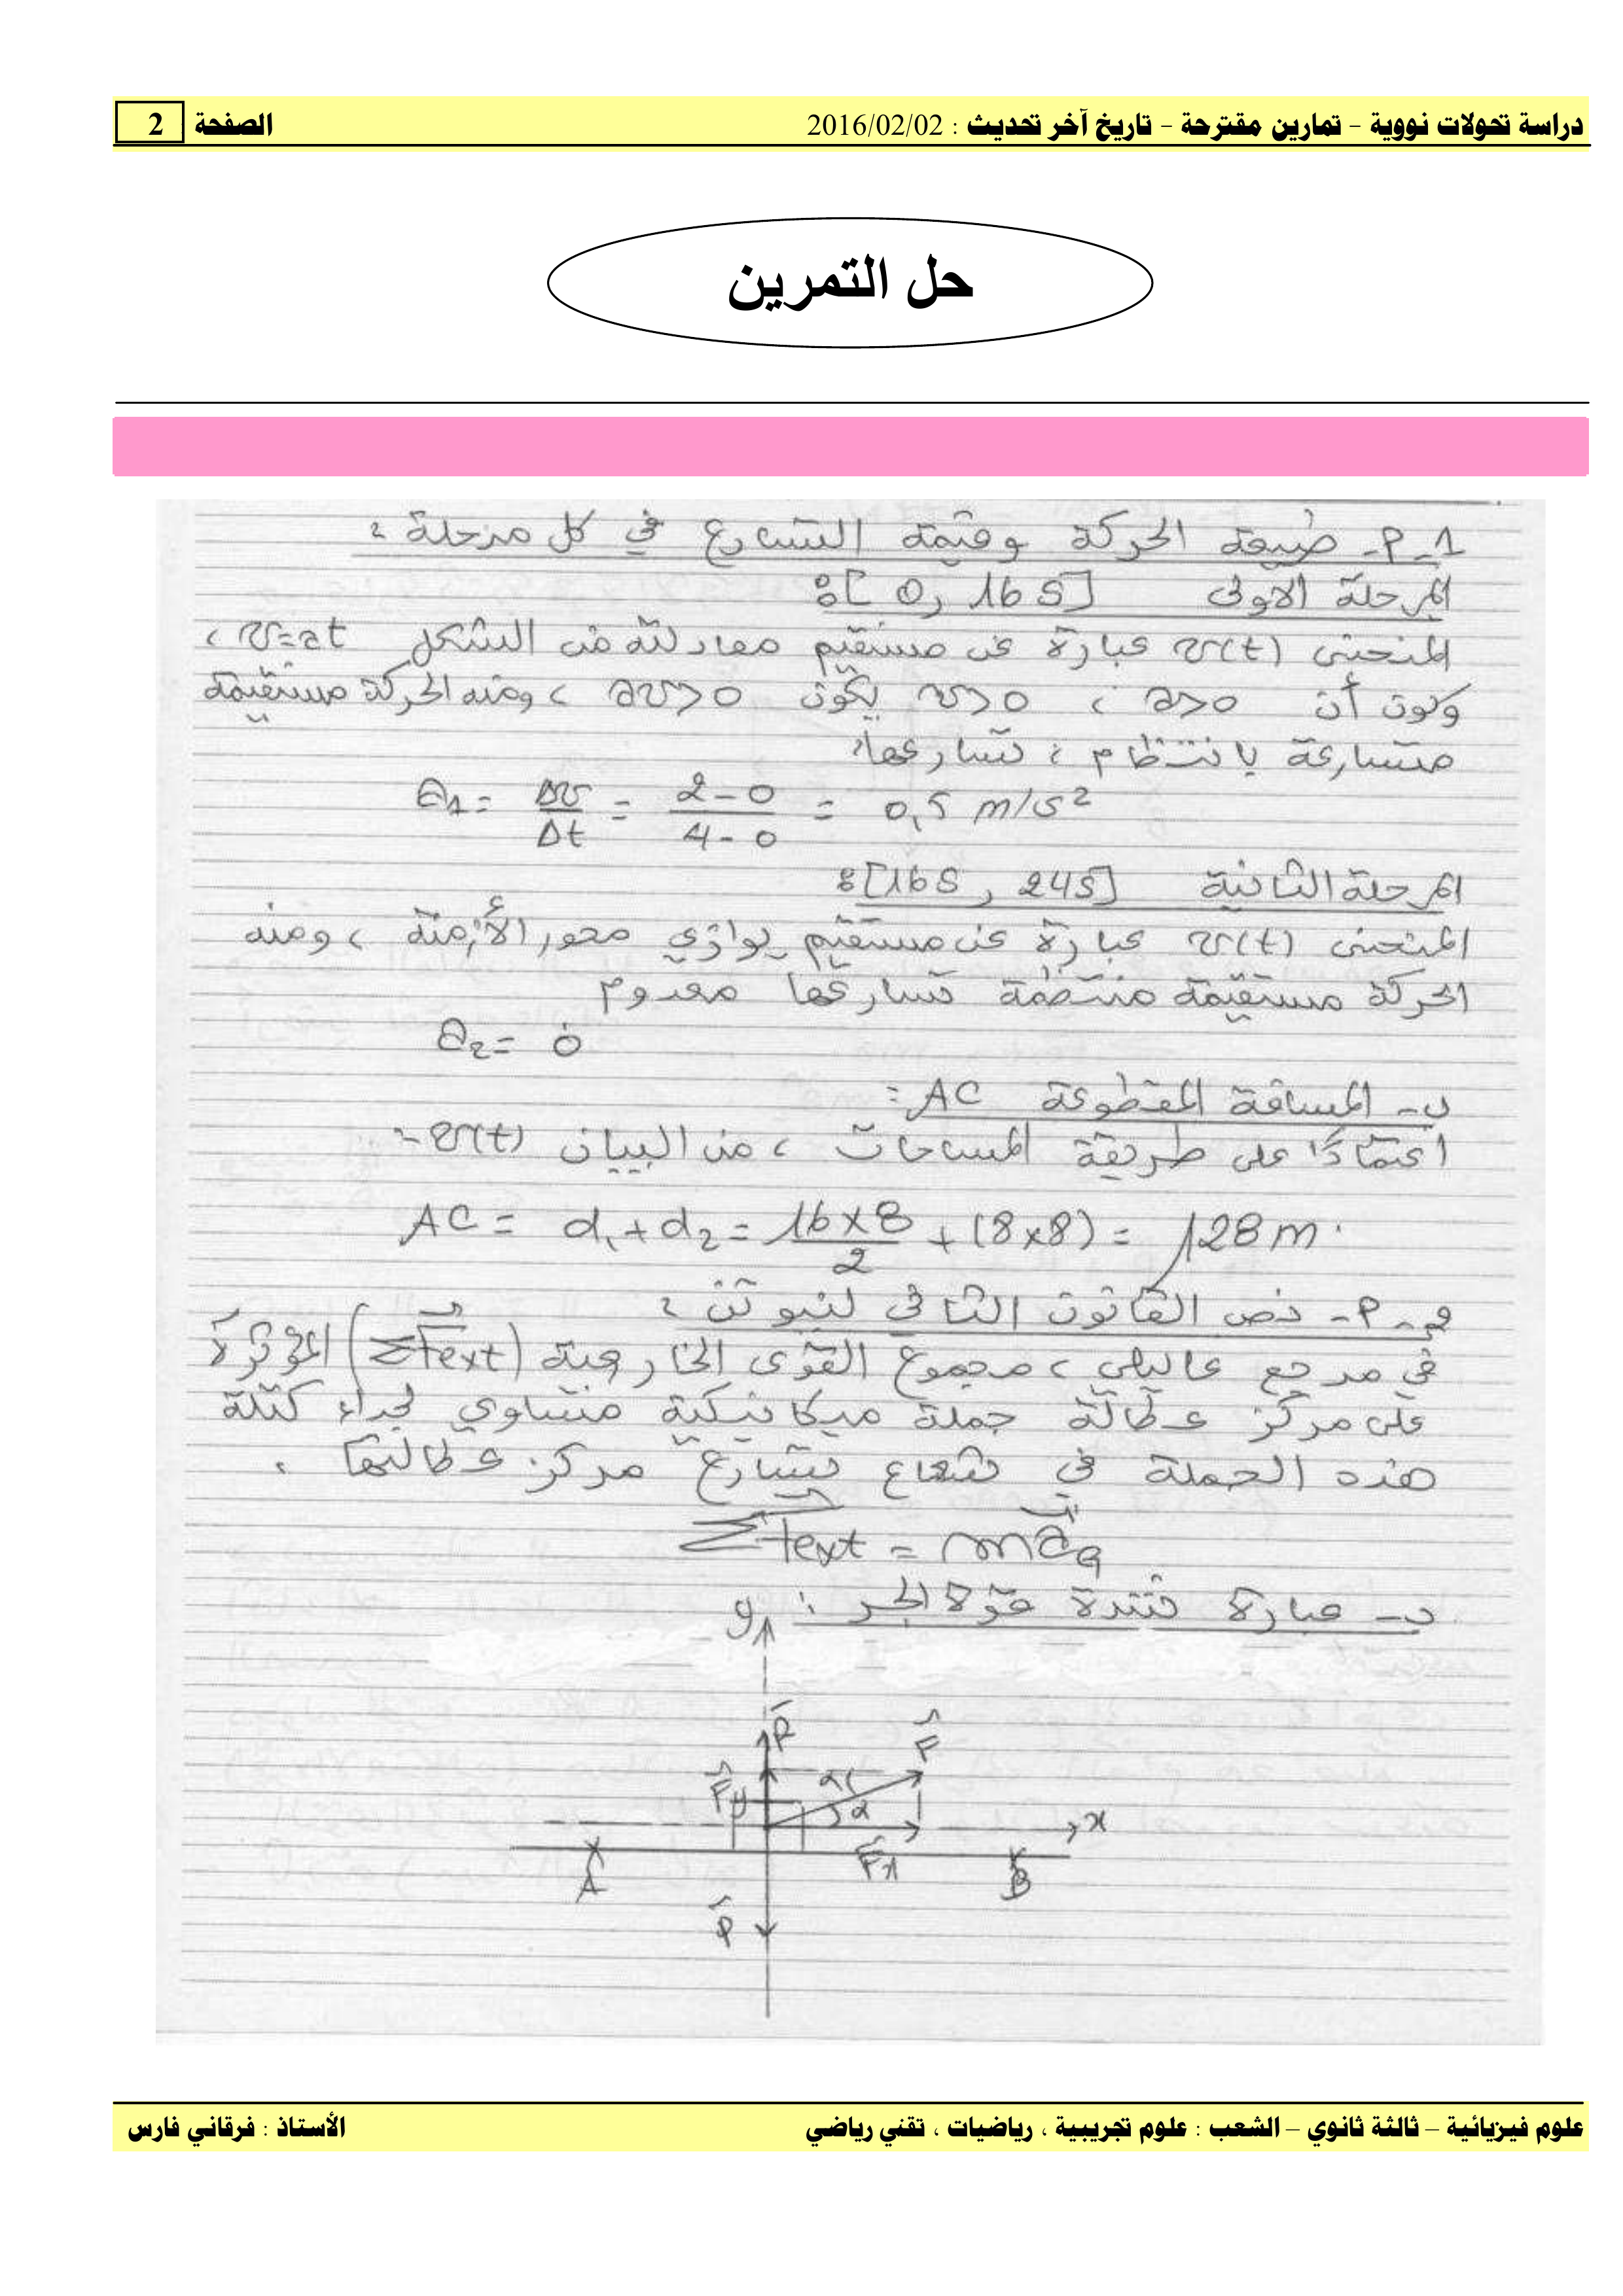 دراسة تحولات نووية – تمارين مقترحة – تاريخ آخر تحديث : 2016/02/02 الصفحة 2
حل التمرين
1-P- طبيعة الحركة وقيمة التسارع في كل مرحلة :
المرحلة الاولى [0 , 16 s] :
المنحنى v(t) عبارة عن مستقيم معادلته من الشكل v=at ،
وكون أن a>0 ، v>0 يكون av>0 ، ومنه الحركة مستقيمة
متسارعة بانتظام ، تسارعها :
a1 = Δv/Δt = (2-0)/(4-0) = 0,5 m/s²
المرحلة الثانية [16s , 24s] :
المنحنى v(t) عبارة عن مستقيم يوازي محور الأزمنة ، ومنه
الحركة مستقيمة منتظمة تسارعها معدوم
a2 = 0
ب- المسافة المقطوعة AC :
اعتمادًا على طريقة المساحات ، من البيان v(t) :
AC = d1 + d2 = (16×8)/2 + (8×8) = 128 m .
2-P- نص القانون الثاني لنيوتن :
في مرجع غاليلي ، مجموع القوى الخارجية (ΣFext) المؤثرة
على مركز عطالة جملة ميكانيكية متساوي لجداء كتلة
هذه الجملة في شعاع تسارع مركز عطالتها .
ΣFext = m aG
ب- عبارة شدة قوة الجر :
y
R
F
Fy
α
x
Fx
A
B
P
علوم فيزيائية – ثالثة ثانوي – الشعب : علوم تجريبية ، رياضيات ، تقني رياضي الأستاذ : فرقاني فارس